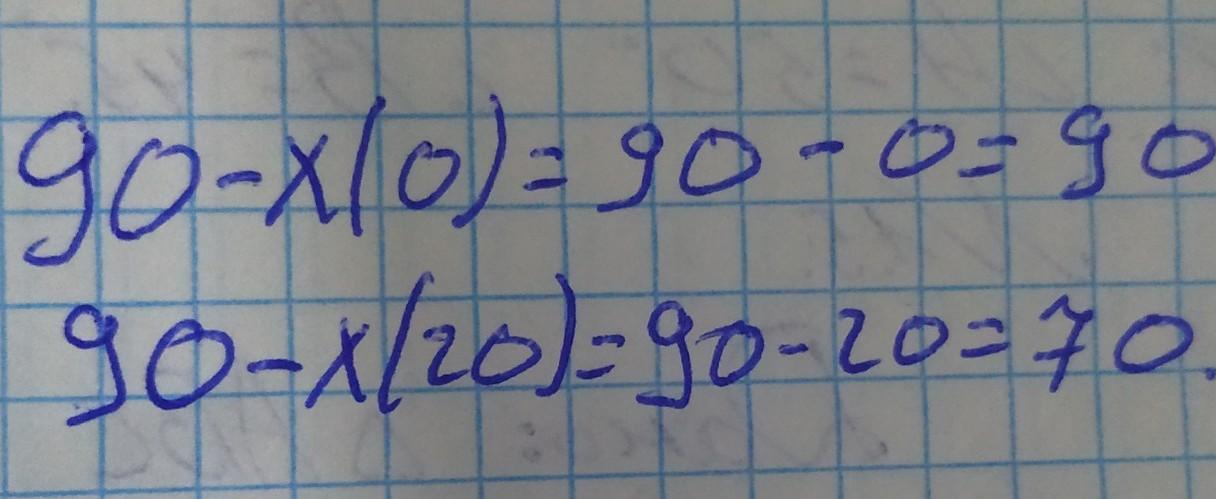 90-x(0)=90-0=90
90-x(20)=90-20=70.